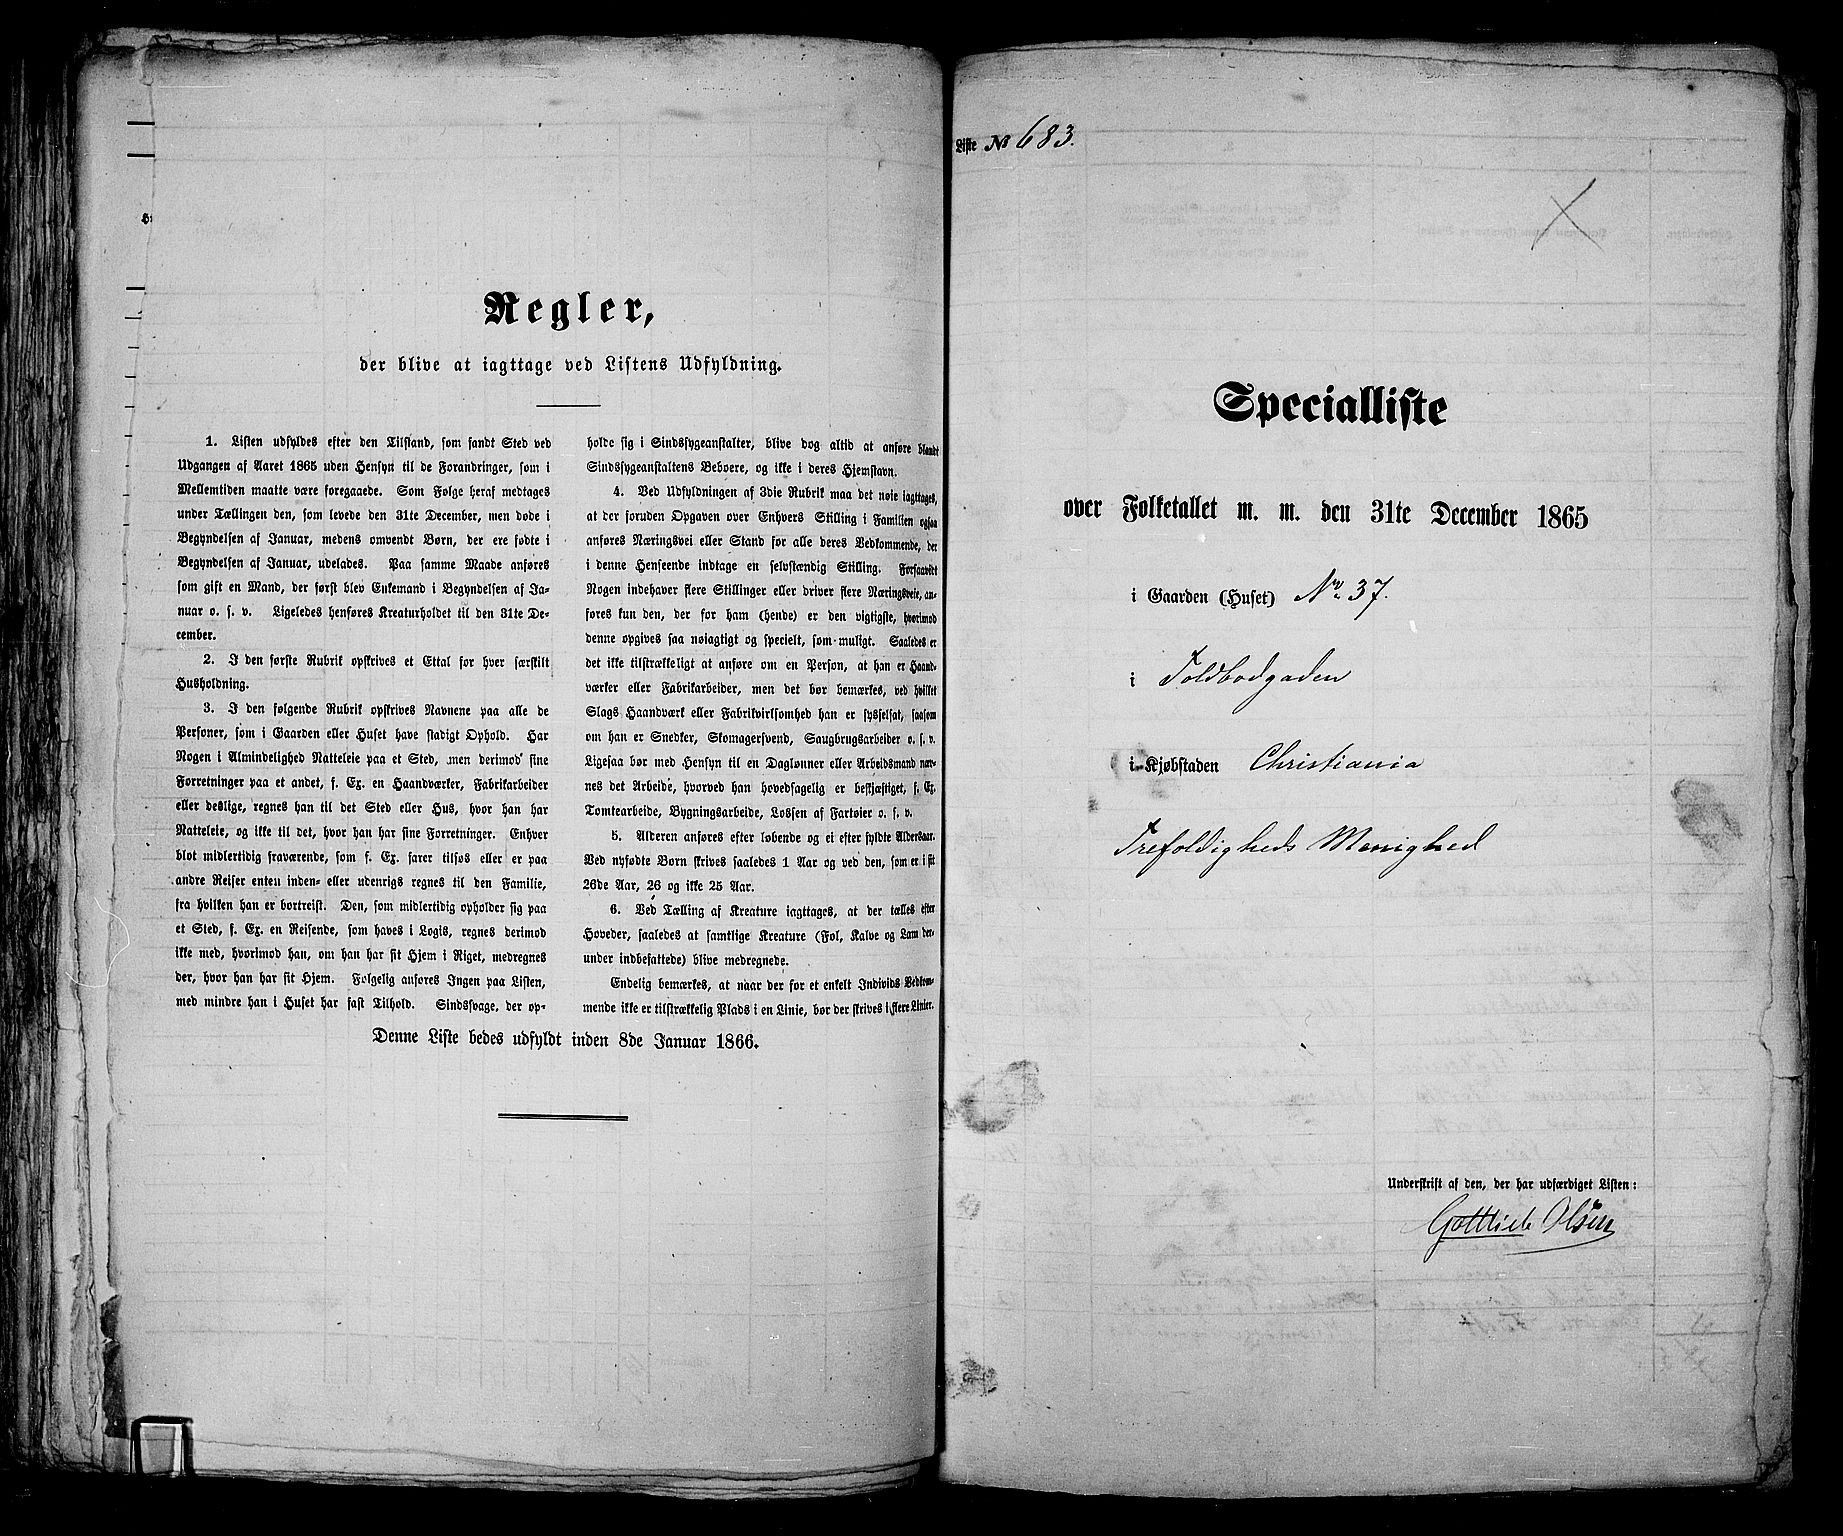 Regler,
der blive at iagttage ved Listens Udfyldning.
1. Listen udfyldes efter den Tilstand, som fandt Sted ved
Udgangen af Aaret 1865 uden Hensyn til de Forandringer, som i
Mellemtiden maatte være foregaaede. Som Følge heraf medtages
under Tællingen den, som levede den 31te December, men døde i
Begyndelsen af Januar, medens omvendt Børn, der ere fødte i
Begyndelsen af Januar, udelades. Paa samme Maade anføres
som gift en Mand, der først blev Enkemand i Begyndelsen af Ja-
nuar o. s. v. Ligeledes henføres Kreaturholdet til den 31te De-
cember.
2. I den første Rubrik opskrives et Ettal for hver særskilt
Husholdning.
3. I den følgende Rubrik opskrives Navnene paa alle de
Personer, som i Gaarden eller Huset have stadigt Ophold. Har
Nogen i Almindelighed Natteleie paa et Sted, men derimod sine
Forretninger paa et andet, f. Ex. en Haandværker, Fabrikarbeider
eller deslige, regnes han til det Sted eller Hus, hvor han har
Natteleie, og ikke til det, hvor han har sine Forretninger. Enhver
blot midlertidig fraværende, som f. Ex. farer tilsøs eller er paa
andre Reiser enten inden- eller udenrigs regnes til den Familie,
fra hvilken han er bortreist. Den, som midlertidig opholder sig paa
et Sted, f. Ex. en Reisende, som haves i Logis, regnes derimod
ikke med, hvorimod han, om han har sit Hjem i Riget, medregnes
der, hvor han har sit Hjem. Følgelig anføres Ingen paa Listen,
med mindre han i Huset har fast Tilhold. Sindssvage, der op-
holde sig i Sindssygeanstalter, blive dog altid at anføre blandt
Sindssygeanstaltens Beboere, og ikke i deres Hjemstavn.
4. Ved Udfyldningen af 3die Rubrik maa det nøie iagttages,
at der foruden Opgaven over Enhvers Stilling i Familien ogsaa
anføres Næringsvei eller Stand for alle deres Vedkommende, der
i denne Henseende indtage en selvstændig Stilling. Forsaavidt
Nogen indehaver flere Stillinger eller driver flere Næringsveie, an-
føres kun den, der for ham (hende) er den vigtigste, hvorimod
denne opgives saa nøiagtigt og specielt, som muligt. Saaledes er
det ikke tilstrækkeligt at anføre om en Person, at han er Haand-
værker eller Fabrikarbeider, men det bør bemærkes, ved hvilket
Slags Haandværk eller Fabrikvirksomhed han er sysselsat, saasom
om han er Snedker, Skomagersvend, Saugbrugsarbeider o. s. v.
Ligesaa bør med Hensyn til en Dagløner eller Arbeidsmand næv-
nes det Arbeide, hvorved han hovedsagelig er beskjæftiget, f. Ex.
Tomtearbeide, Bygningsarbeide, Lossen af Fartøier o. s. v.
5. Alderen anføres efter løbende og ei efter fyldte Aldersaar.
Ved nyfødte Børn skrives saaledes 1 Aar og ved den, som er i sit
26de Aar, 26 og ikke 25 Aar.
6. Ved Tælling af Kreature iagttages, at der tælles efter
Hoveder, saaledes at samtlige Kreature (Føl, Kalve og Lam der-
under indbefattede) blive medregnede.
Endelig bemærkes, at naar der for et enkelt Individs Vedkom-
mende ikke er tilstrækkelig Plads i en Linie, bør der skrives i flere Linier.
Denne Liste bedes udfyldt inden 8de Januar 1866.
Liste № 683.
Specialliste
over Folketallet m. m. den 31te December 1865
i Gaarden (Huset) No. 37.
i Toldbodgaden
i Kjøbstaden Christiania
Trefoldigheds Menighed
Underskrift af den, der har udfærdiget Listen:
Gottlieb Olsen